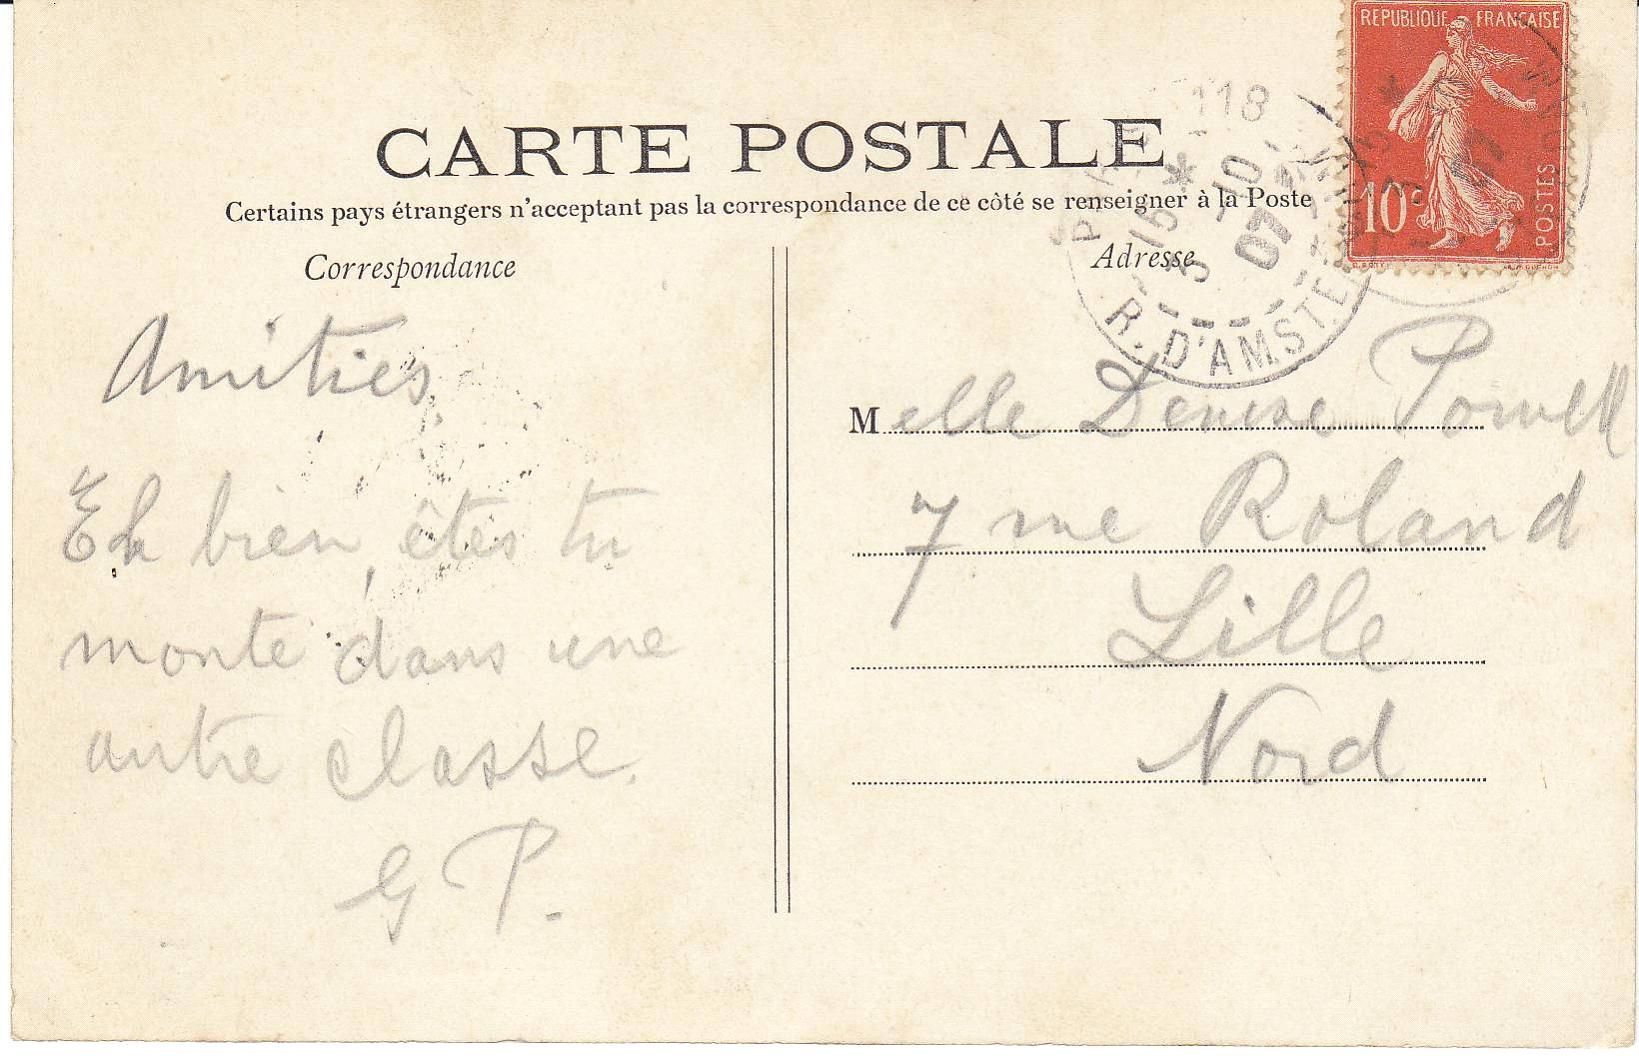 REPUBLIQUE FRANÇAISE
10c
POSTES
CARTE POSTALE
Certains pays étrangers n'acceptant pas la correspondance de ce côté se renseigner à la Poste
Correspondance
Amitiés.
Eh bien, êtes tu
monté dans une
autre classe.
G P.
118
15 * 10
3
07
R. D'AMSTE
Adresse
Melle Denise Powell
7 rue Roland
Lille
Nord